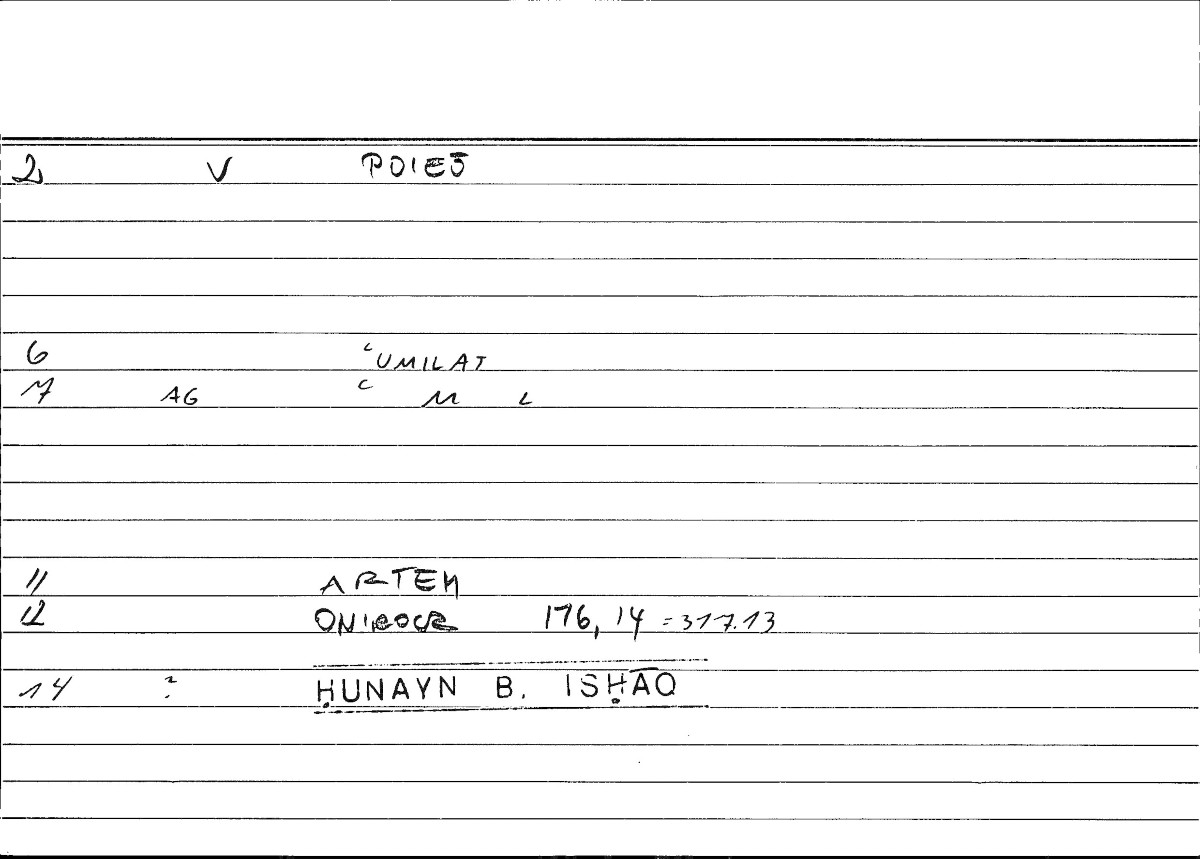 2 V POIEŌ
6 ʿUMILAT
7 AG ʿ M L
11 ARTEM
12 ONIROCR 176, 14 = 317.13
14 ? ḤUNAYN B. ISḤĀQ